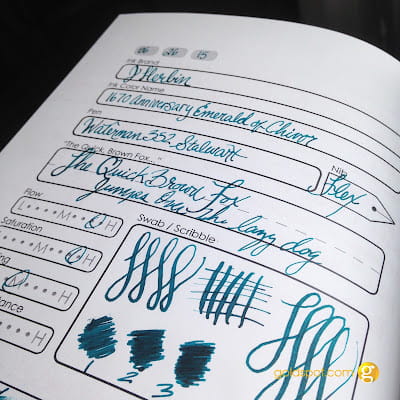 06 26 15
Ink Brand
J Herbin
Ink Color Name
1670 Anniversary Emerald of Chivor
Pen
Waterman 352 Stalwart
"The Quick, Brown Fox..."
The Quick Brown Fox
Jumps Over The lazy dog
Nib
Flex
Flow
L M H
Saturation
M H
M H
Swab / Scribble
1 2 3
goldspot.com g